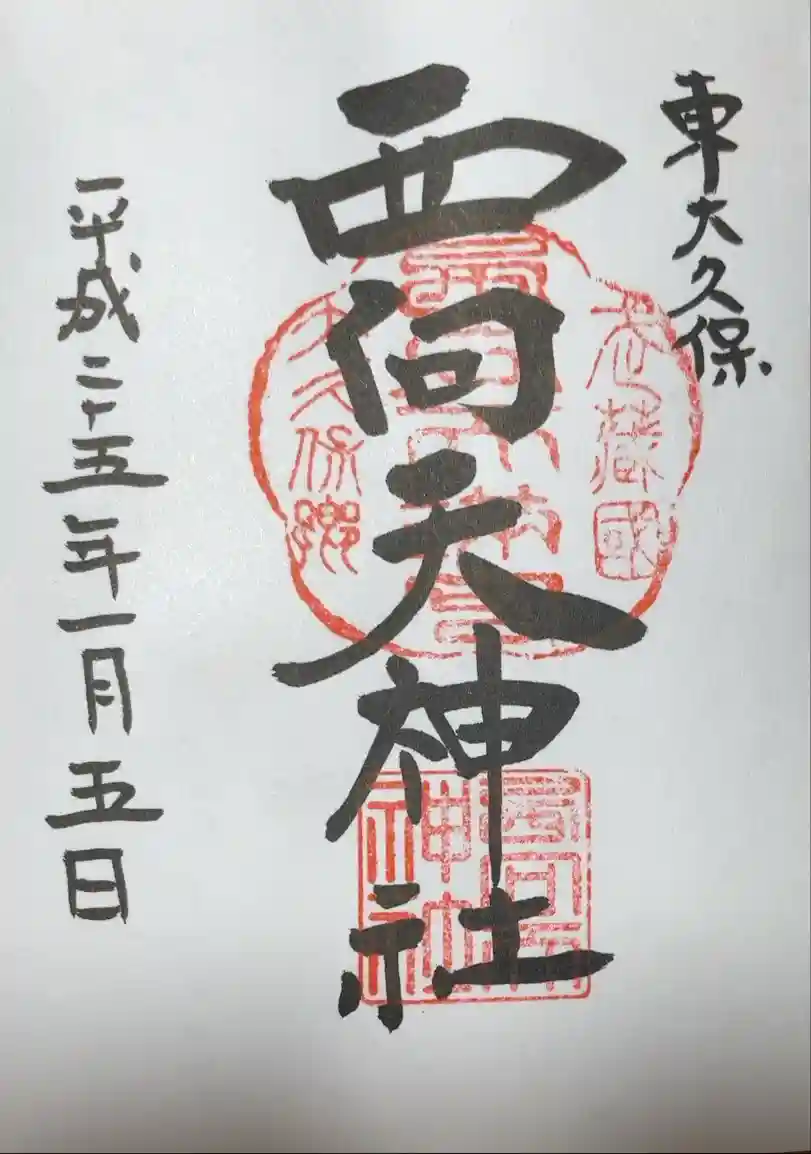 東大久保
西向天神社
武蔵国
大久保郷
西向天
神社
平成二十五年一月五日